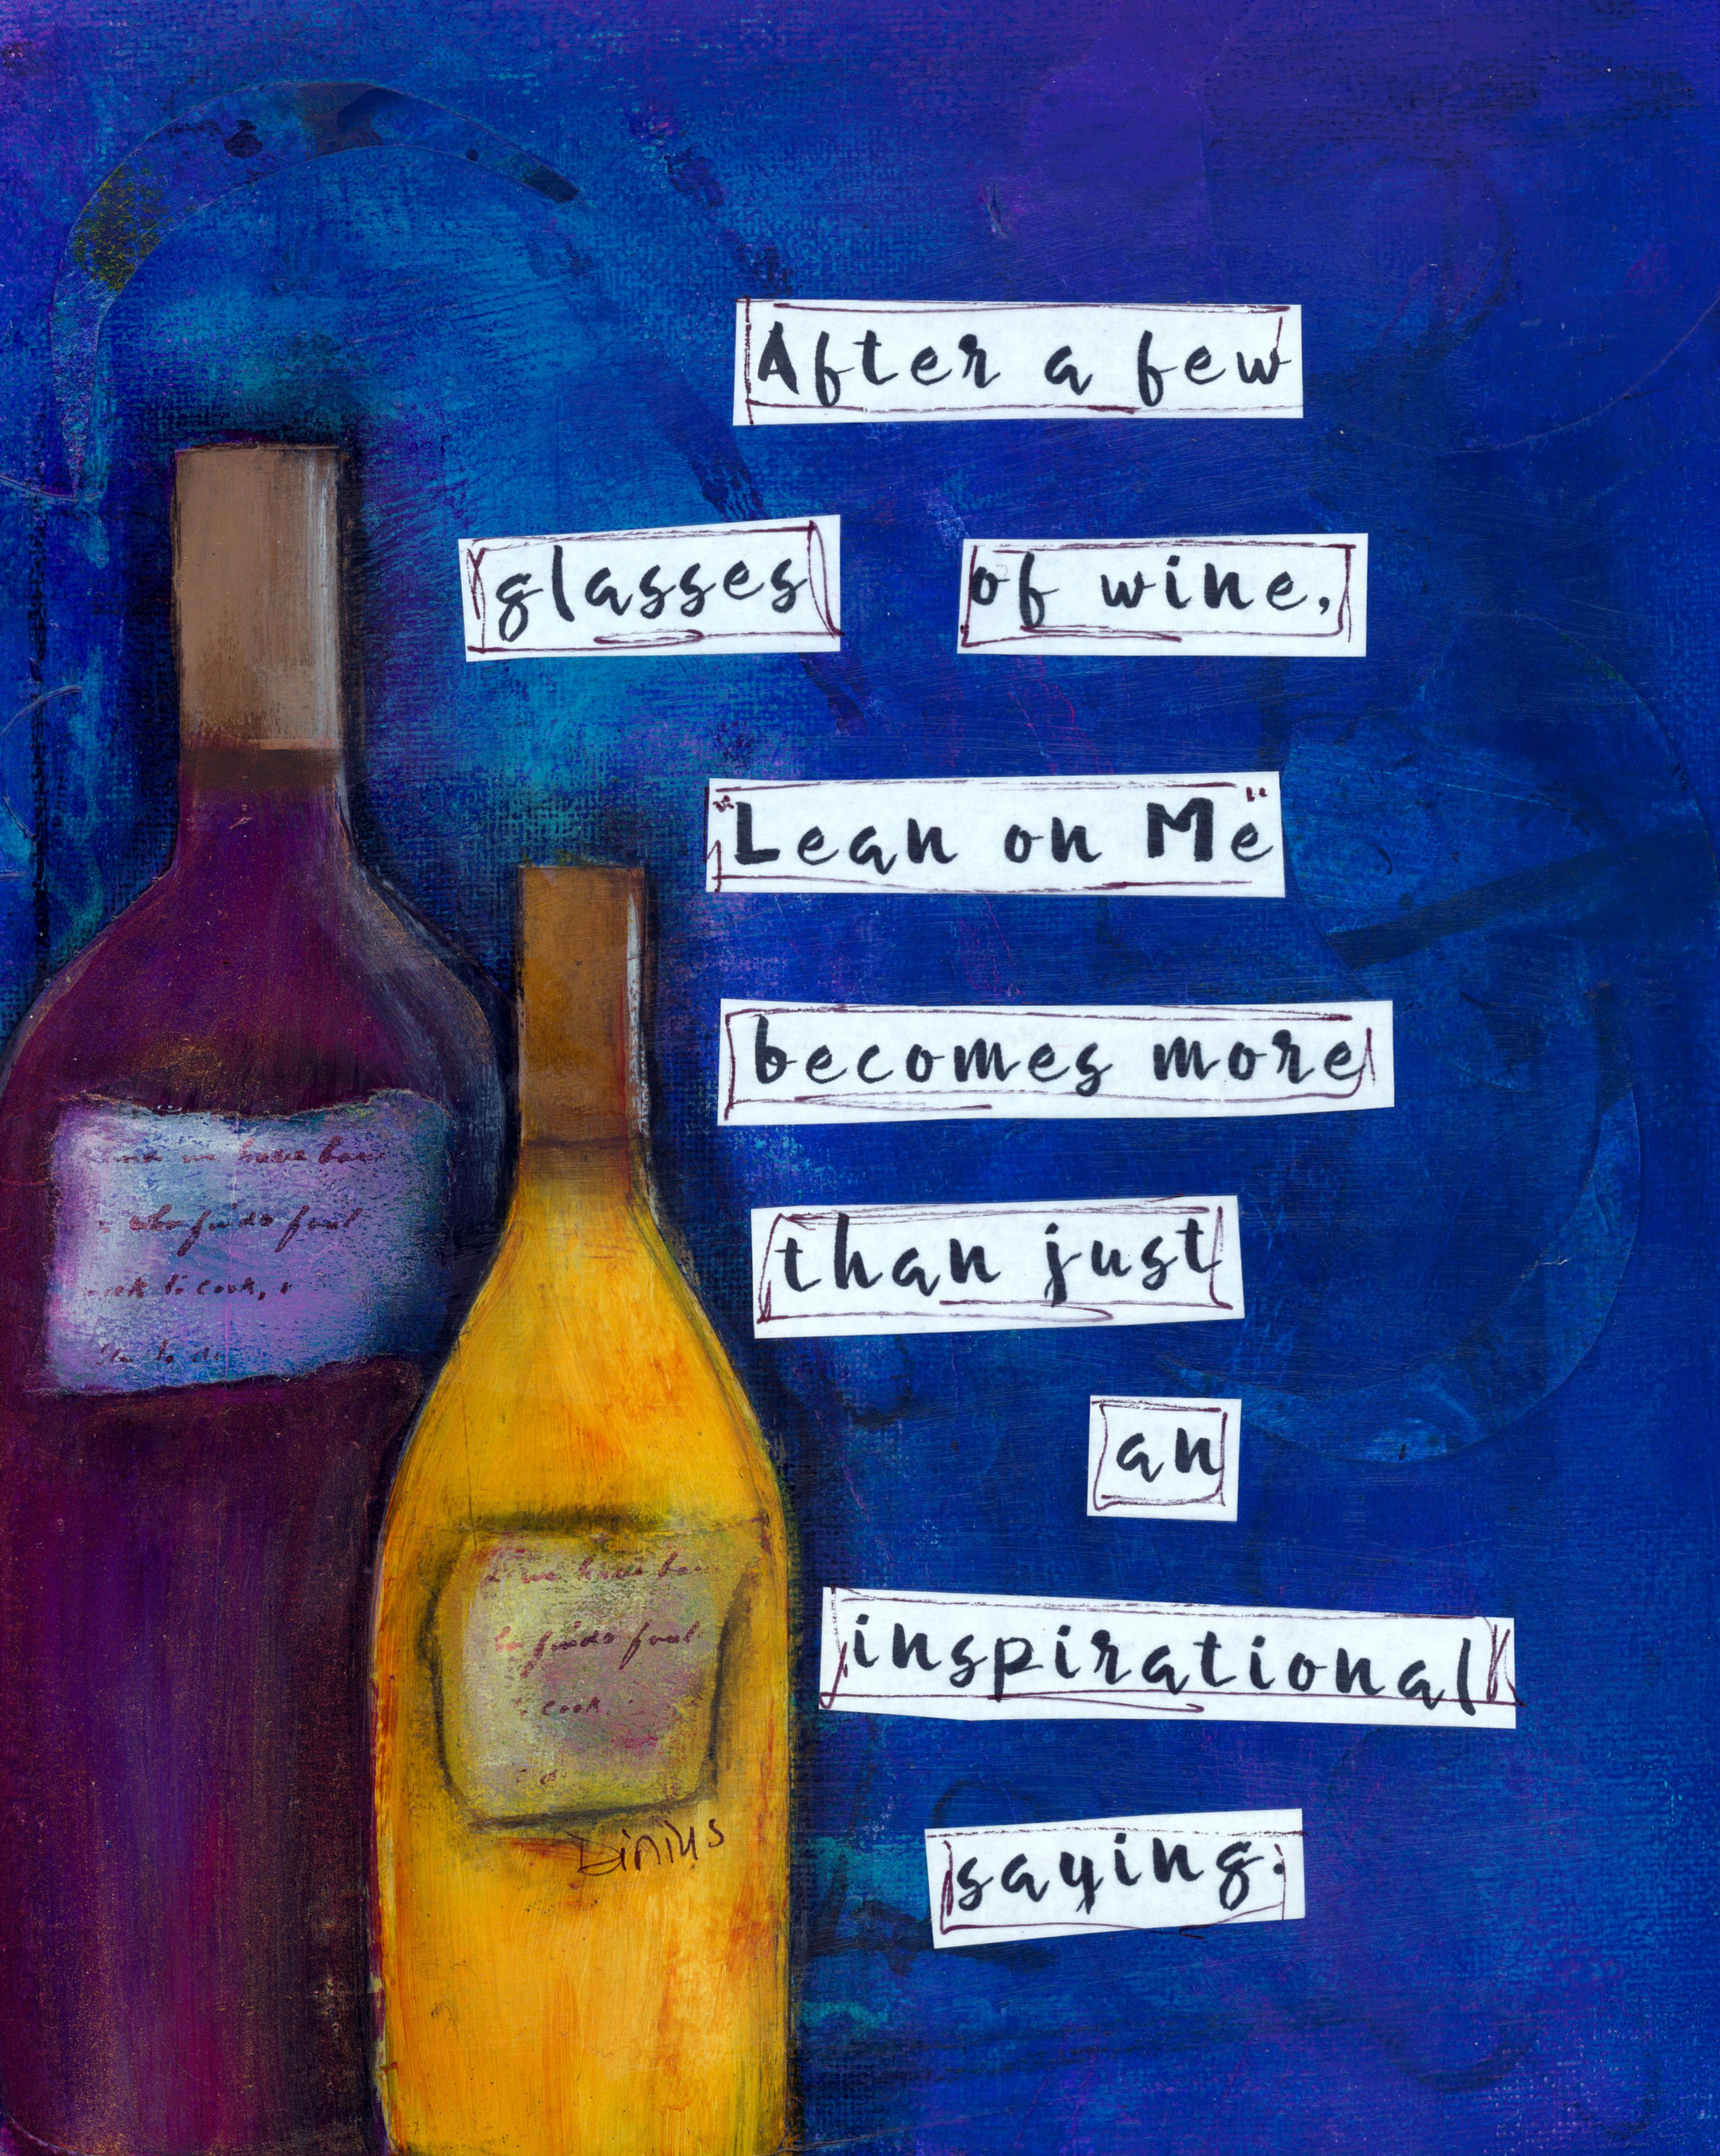 After a few
glasses of wine,
"Lean on Me"
becomes more
than just
an
inspirational
saying.
have
to cook,
have
cook.
Dinius